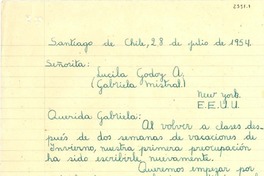 Santiago de Chile, 28 de julio de 1954.
Señorita:
Lucila Godoy A.
(Gabriela Mistral)
New York.
E.E.U.U.
Querida Gabriela:
Al volver a clases des-
pués de dos semanas de vacaciones de
Invierno, nuestra primera preocupación
ha sido escribirle nuevamente.
Queremos empezar por